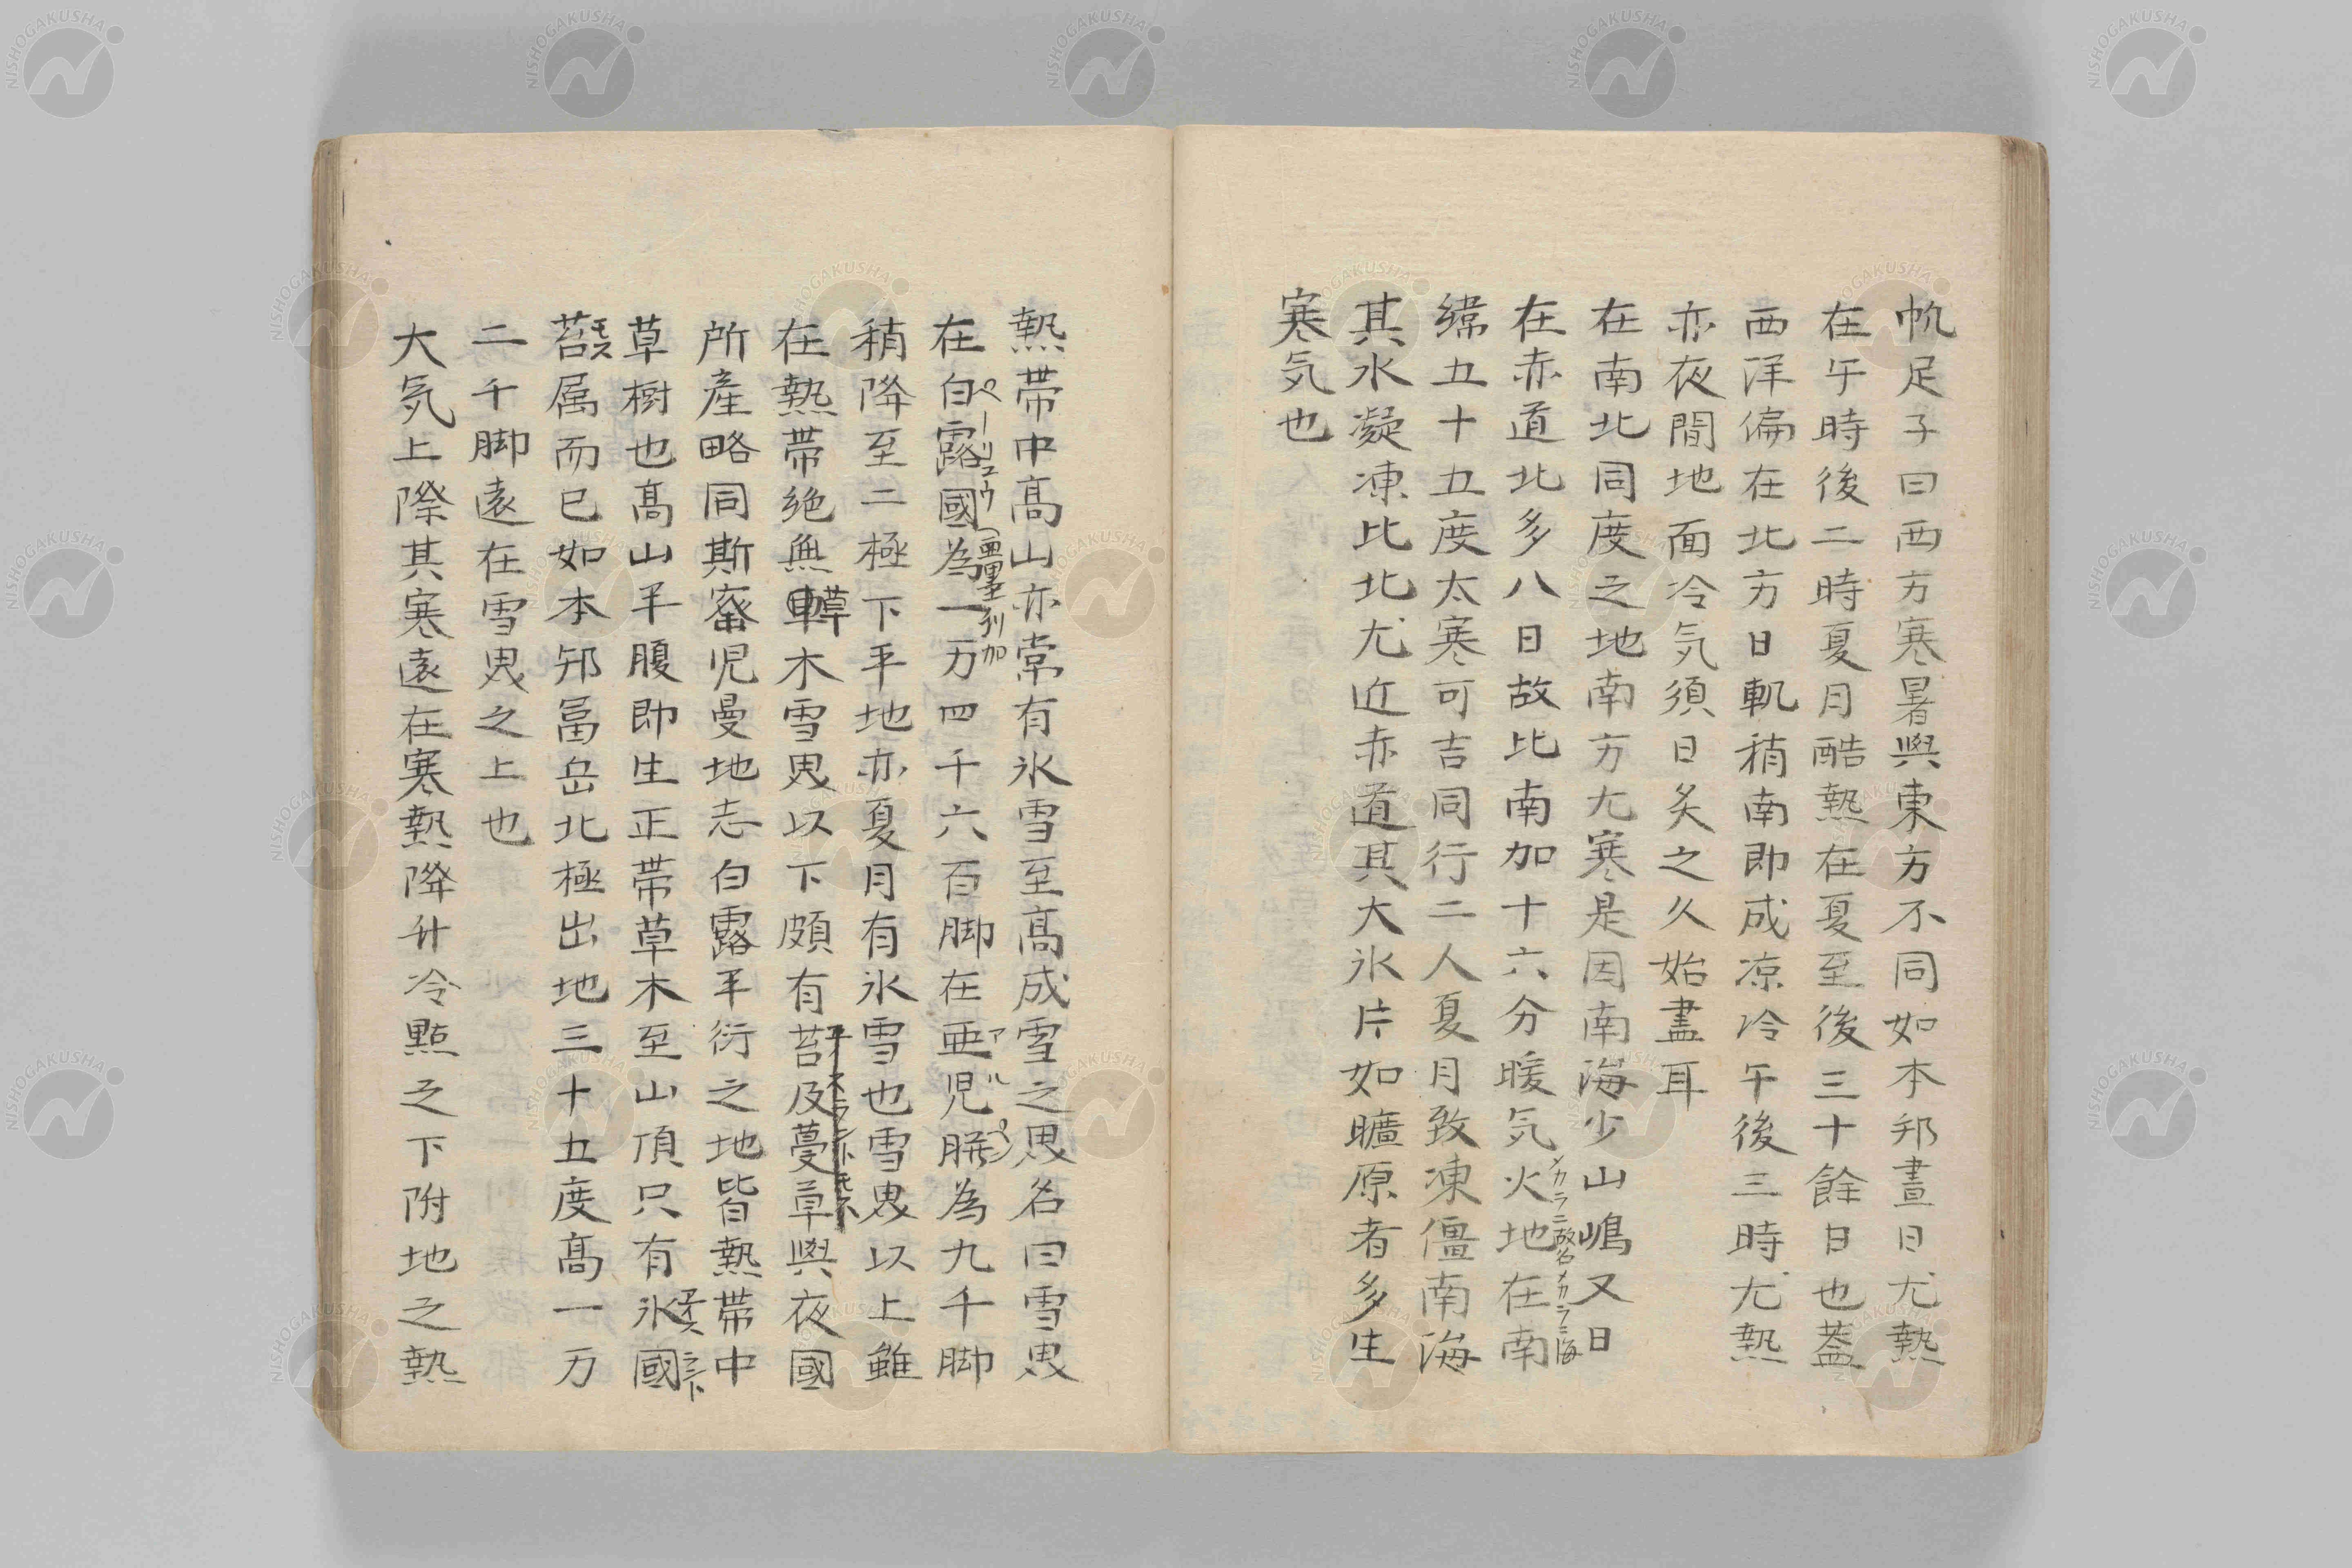 帆足子曰西方寒暑與東方不同如本邦晝日尤熱
在午時後二時夏月酷熱在夏至後三十餘日也蓋
西洋偏在北方日軌稍南即成凉冷午後三時尤熱
亦夜間地面冷気須日炙之久始盡耳
在南北同度之地南方尤寒是因南海少山嶋又日
在赤道北多八日故比南加十六分暖気火地在南
メカラニ故名メカラニ海
緯五十五度太寒可吉同行二人夏月致凍僵南海
其水凝凍比北尤近赤道其大氷片如曠原者多生
寒気也
熱帯中髙山亦常有氷雪至髙成雪之界名曰雪界
在白露國為一万四千六百脚在亜児腁為九千脚
ペーリユウ
アルペン
稍降至二極下平地亦夏月有氷雪也雪界以上雖
在熱帯絶無草木雪界以下頗有苔及蔓草與夜國
所産略同斯宻児曼地志白露平衍之地皆熱帯中
草樹也髙山半腹即生正帯草木至山頂只有氷國
苔属而已如本邦冨岳北極出地三十五度髙一万
モス
二千脚遠在雪界之上也
大気上際其寒遠在寒熱降升冷點之下附地之熱
NISHOGAKUSHA